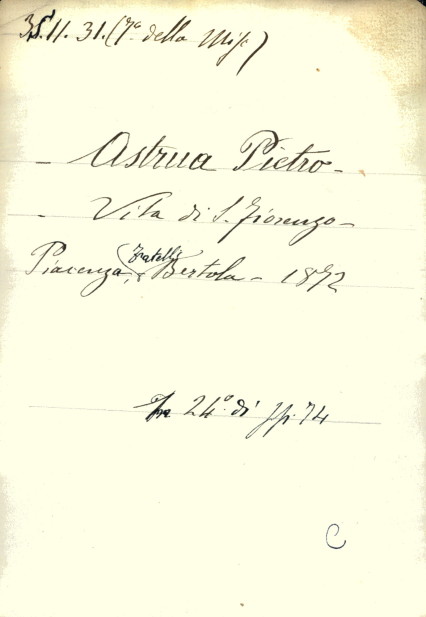 35.11.31. (7ª della Misc.)
- Astrua Pietro -
- Vita di S. Fiorenzo -
Fratelli
Piacenza, Bertola - 1872
In 24° di pp. 74
C